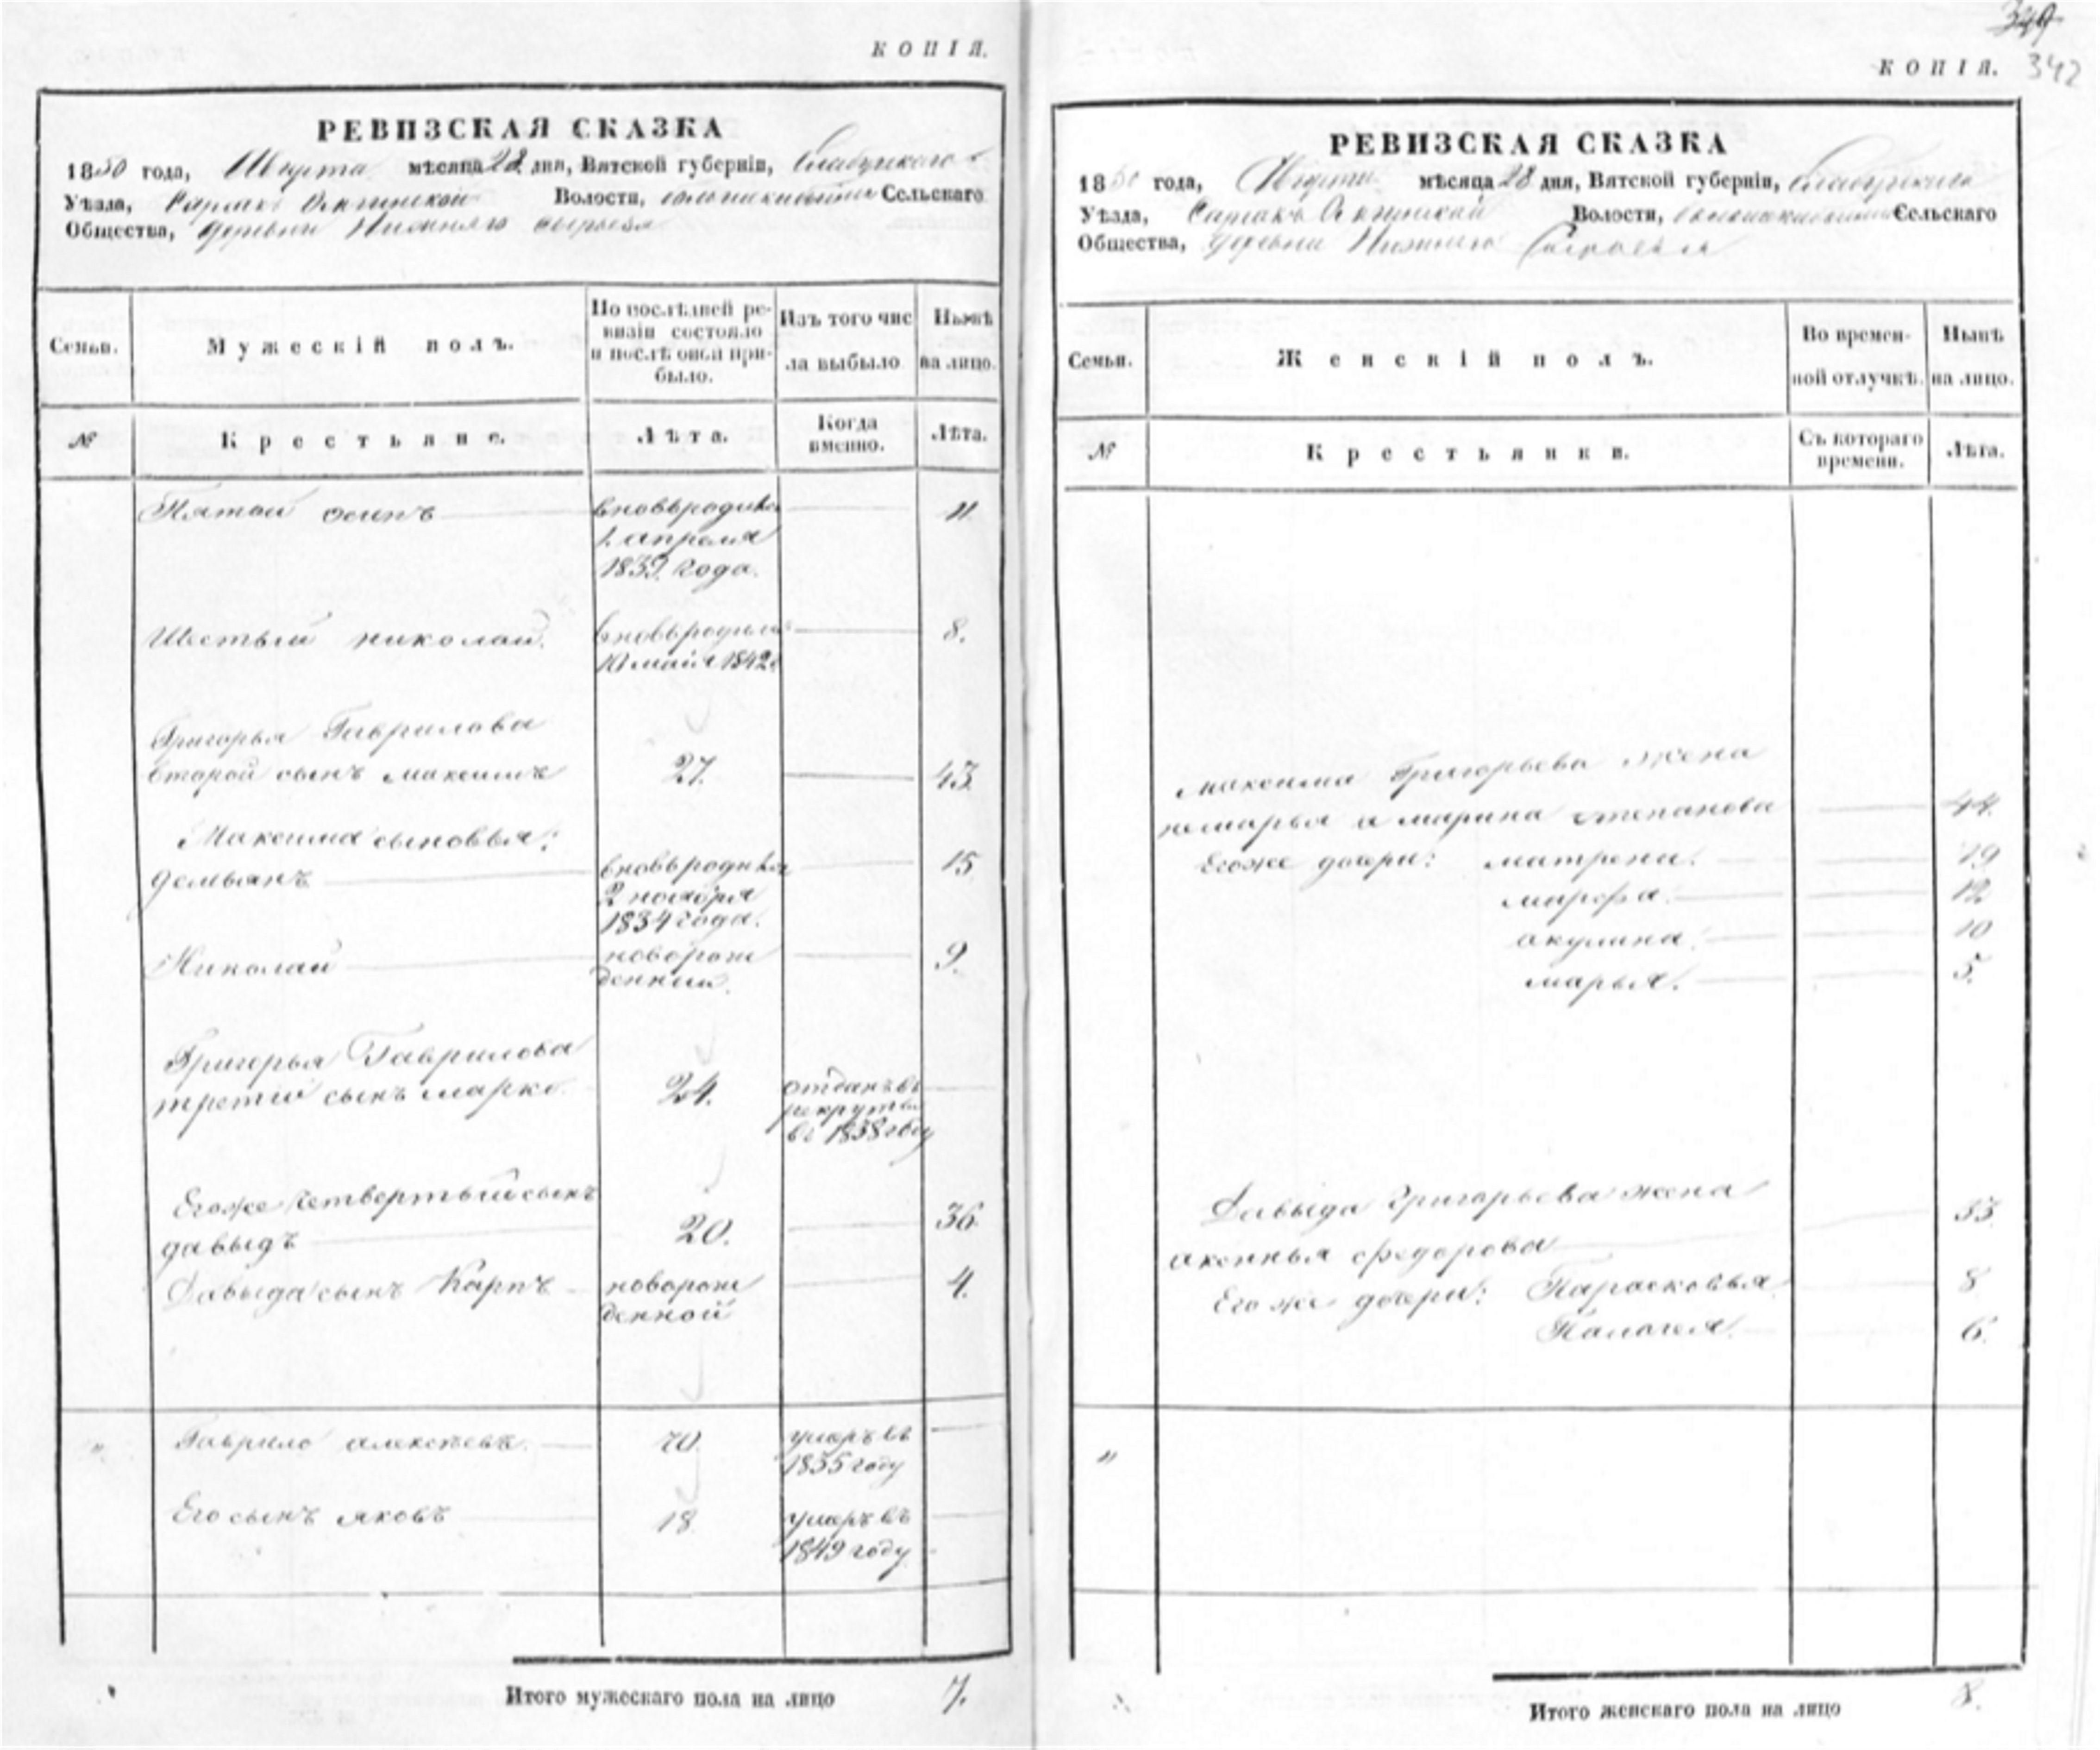 КОПІЯ.
РЕВИЗСКАЯ СКАЗКА
1850 года, Августа мѣсяца 28 дня, Вятской губерніи, Елабужскаго
Уѣзда, Волости, Сельскаго
Общества, деревни Нижняго Сырьева
Семьи.
Мужескій полъ.
По послѣдней ре-
визіи состояло
и послѣ оной при-
было.
Изъ того чис
ла выбыло
Нынѣ
на лицо.
№
Крестьяне.
Лѣта.
Когда
именно.
Лѣта.
Пятой осипъ вновьродился 11.
1 апреля
1839 года.
Шестый николай. вновьродился 8.
10 майя 1842
Григорья Гаврилова
второй сынъ максимъ 27. 43.
Максима сыновья:
демьянъ вновьродился 15
2 ноября
1834 года.
Николай новорож 9.
денный.
Григорья Гаврилова
третій сынъ марко. 24. отданъ въ
рекруты
въ 1838 году
Егоже четвертый сынъ
давыдъ 20. 36.
Давыда сынъ Карпъ новорож 4.
денной
" Гаврило алексѣевъ 70. умеръ въ
1835 году
Его сынъ яковъ 18 умеръ въ
1849 году
Итого мужескаго пола на лицо 7.
349
КОПІЯ. 342
РЕВИЗСКАЯ СКАЗКА
1850 года, Августа мѣсяца 28 дня, Вятской губерніи, Елабужскаго
Уѣзда, Волости, Сельскаго
Общества, деревни Нижняго Сырьева
Семьи.
Женскій полъ.
Во времен-
ной отлучкѣ.
Нынѣ
на лицо.
№
Крестьянки.
Съ котораго
времени.
Лѣта.
Максима Григорьева жена
немарья а марина степанова 44.
Егоже дочери: матрена. 19
марфа. 12
акулина. 10
марья. 5.
Давыда Григорьева жена 33
аксинья федорова
Егоже дочери: Парасковья 8
Палагея. 6.
"
Итого женскаго пола на лицо 8.